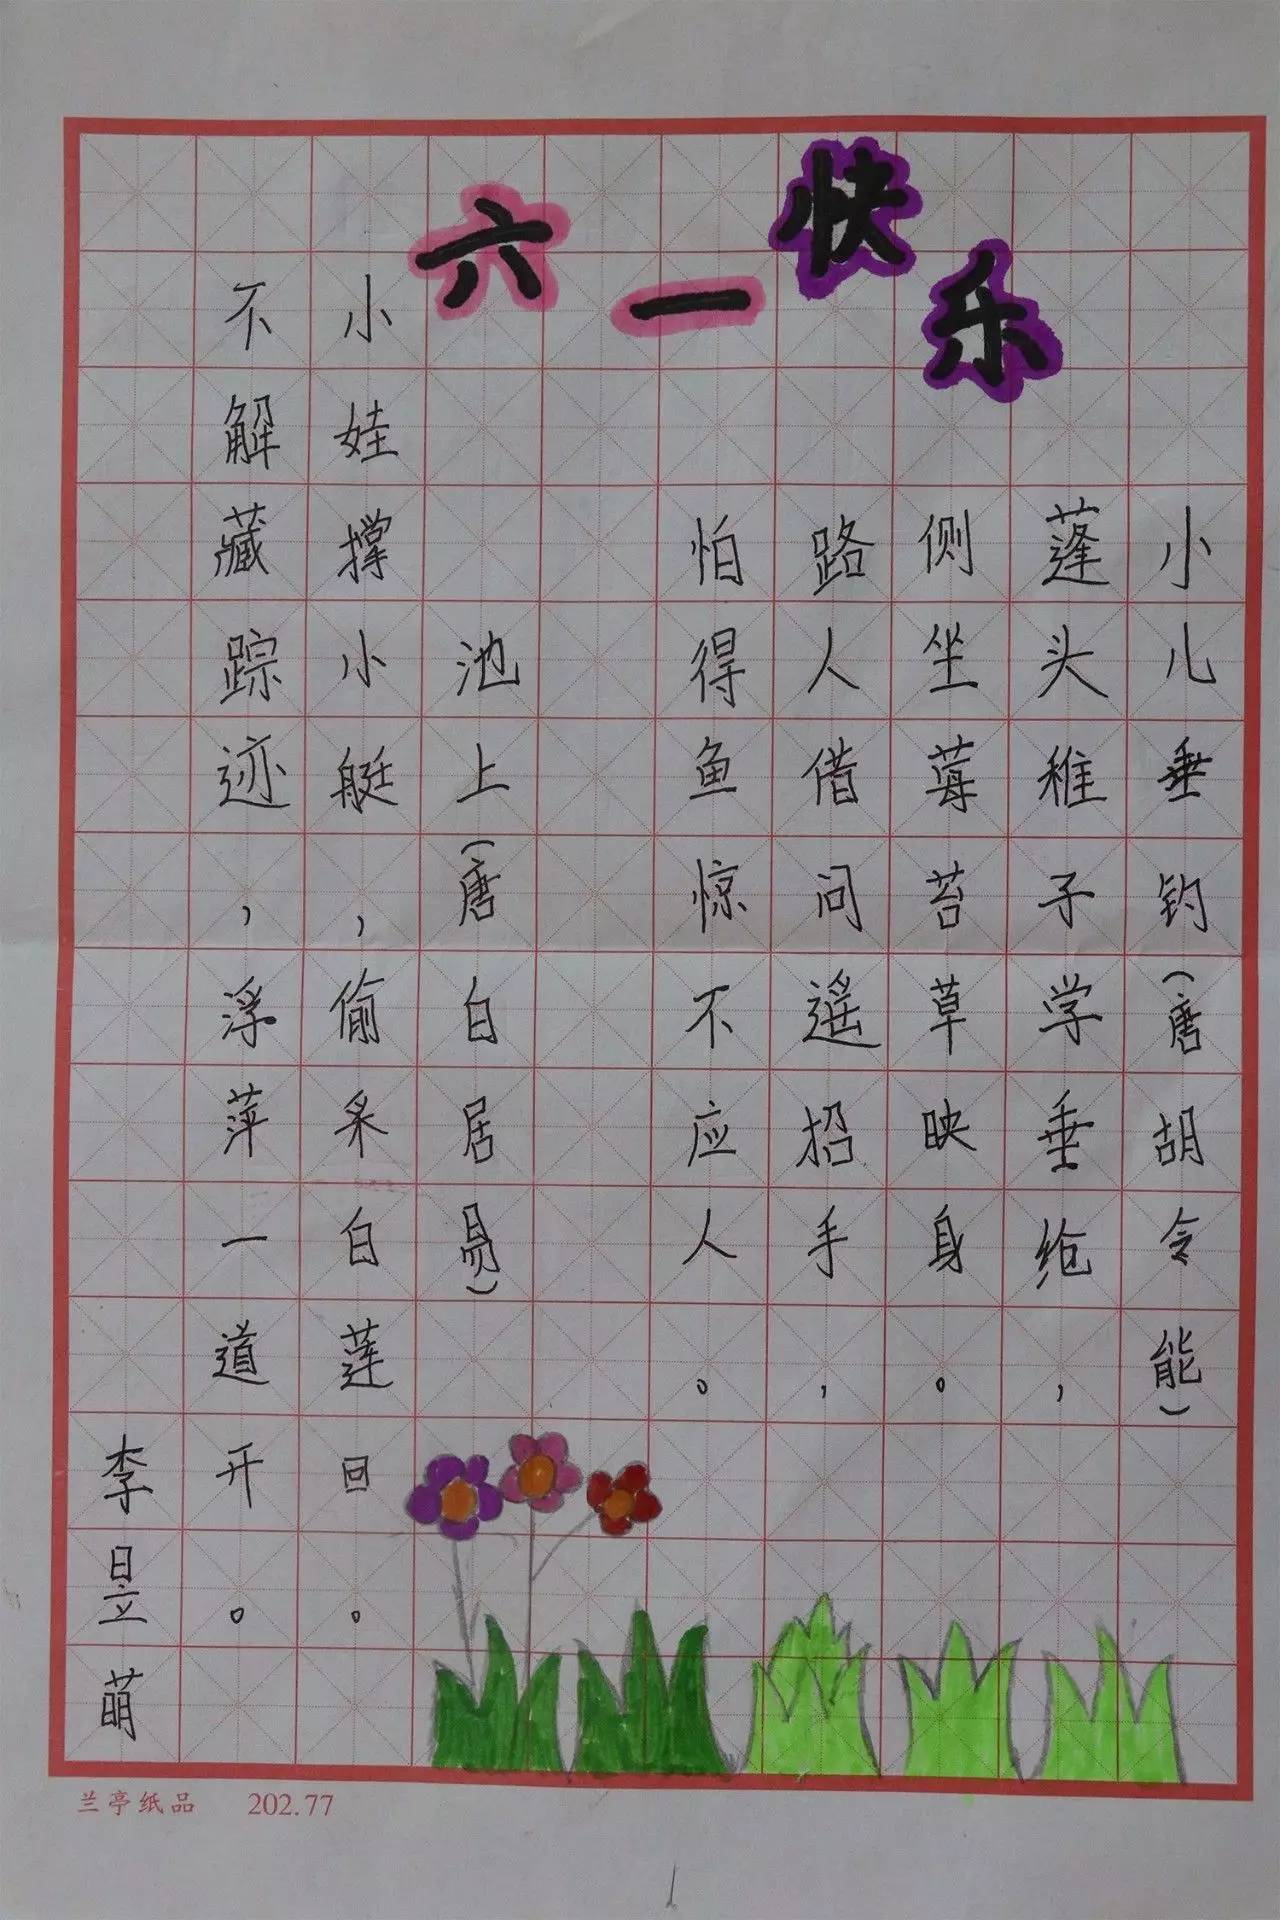 六一快乐
小儿垂钓(唐胡令能)
蓬头稚子学垂纶,
侧坐莓苔草映身。
路人借问遥招手,
怕得鱼惊不应人。
池上(唐白居易)
小娃撑小艇,偷采白莲回。
不解藏踪迹,浮萍一道开。
李昱萌
兰亭纸品 202.77